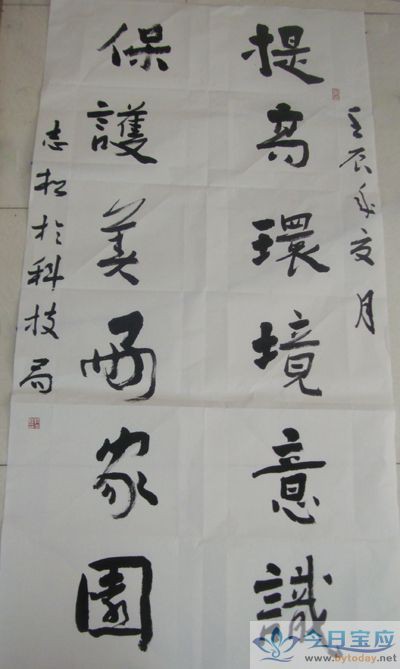 壬辰年夏月
提高環境意識
保護美丽家園
志松於科技局
今日宝应
www.bytoday.net